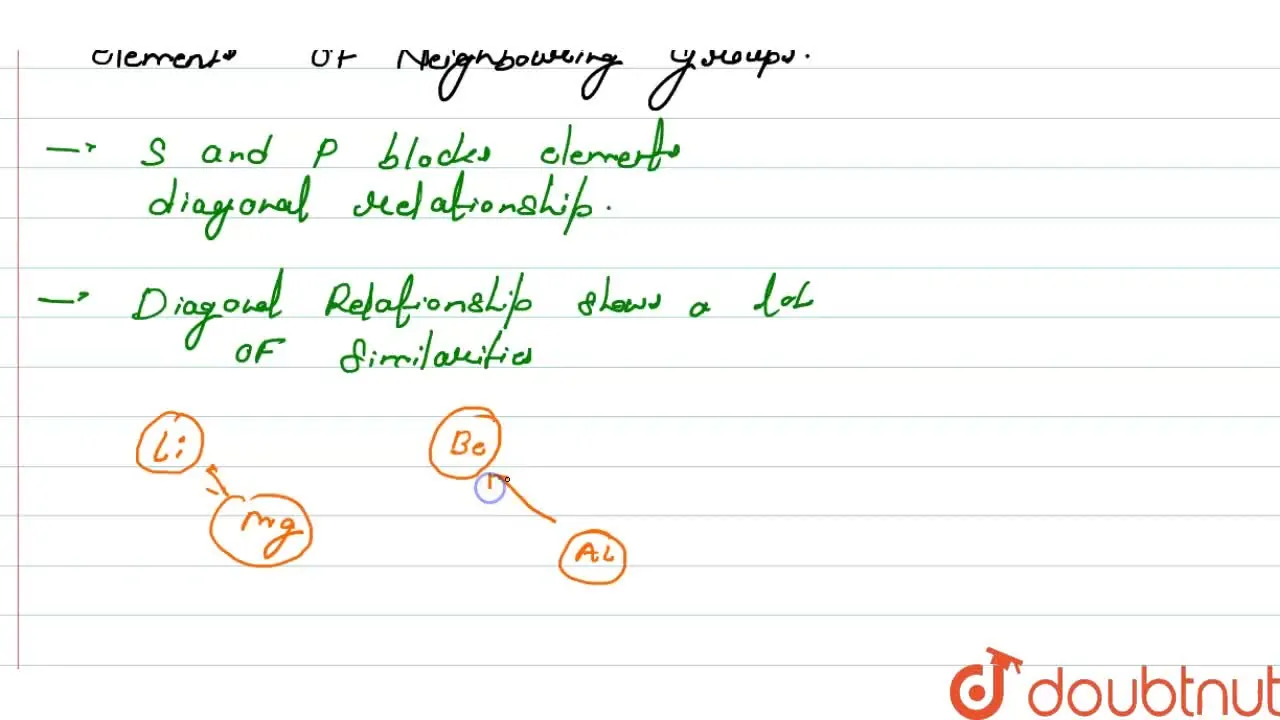 Elements OF Neighbouring groups.
→ S and P blocks elements
diagonal relationship.
→ Diagonal Relationship shows a lot
OF Similarities
Li
Be
Mg
AL
doubtnut